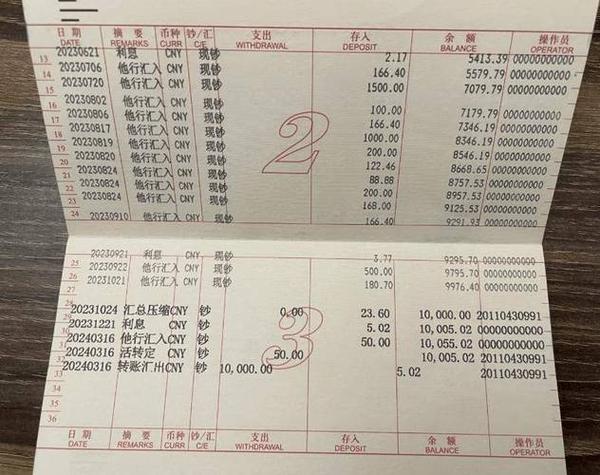 日期 摘要 币种 钞/汇 支出 存入 余额 操作员
DATE REMARKS CURR C/E WITHDRAWAL DEPOSIT BALANCE OPERATOR
13 20230621 利息 CNY 现钞 2.17 5413.39 00000000000
14 20230706 他行汇入 CNY 现钞 166.40 5579.79 00000000000
15 20230720 他行汇入 CNY 现钞 1500.00 7079.79 00000000000
16 20230802 他行汇入 CNY 现钞 100.00 7179.79 00000000000
17 20230806 他行汇入 CNY 现钞 166.40 7346.19 00000000000
18 20230817 他行汇入 CNY 现钞 1000.00 8346.19 00000000000
19 20230819 他行汇入 CNY 现钞 200.00 8546.19 00000000000
20 20230820 他行汇入 CNY 现钞 122.46 8668.65 00000000000
21 20230824 他行汇入 CNY 现钞 88.88 8757.53 00000000000
22 20230824 他行汇入 CNY 现钞 200.00 8957.53 00000000000
23 20230824 他行汇入 CNY 现钞 168.00 9125.53 00000000000
24 20230910 他行汇入 CNY 现钞 166.40 9291.93 00000000000
2
25 20230921 利息 CNY 现钞 3.77 9295.70 00000000000
26 20230922 他行汇入 CNY 现钞 500.00 9795.70 00000000000
27 20231021 他行汇入 CNY 现钞 180.70 9976.40 00000000000
28
29 20231024 汇总压缩 CNY 钞 0.00 23.60 10,000.00 20110430991
30 20231221 利息 CNY 钞 5.02 10,005.02 00000000000
31 20240316 他行汇入 CNY 钞 50.00 10,055.02 00000000000
32 20240316 活转定 CNY 钞 50.00 10,005.02 20110430991
33 20240316 转账汇出 CNY 钞 10,000.00 5.02 20110430991
3
34
35
36
日期 摘要 币种 钞/汇 支出 存入 余额 操作员
DATE REMARKS CURR C/E WITHDRAWAL DEPOSIT BALANCE OPERATOR